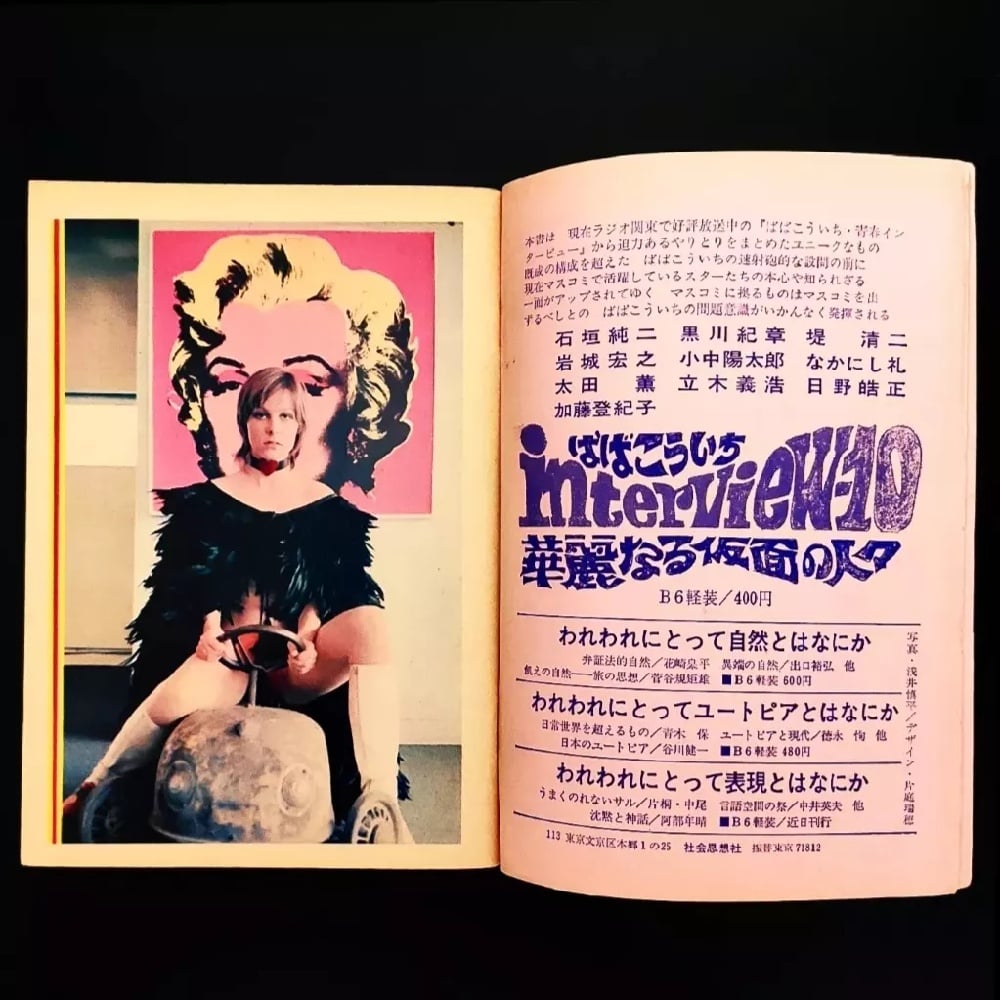 本書は 現在ラジオ関東で好評放送中の『ばばこういち・青春イン
タービュー』から迫力あるやりとりをまとめたユニークなもの
既成の構成を超えた ばばこういちの速射砲的な設問の前に
現在マスコミで活躍しているスターたちの本心や知られざる
一面がアップされてゆく マスコミに拠るものはマスコミを出
ずるべしとの ばばこういちの問題意識がいかんなく発揮される
石垣純二 黒川紀章 堤 清二
岩城宏之 小中陽太郎 なかにし礼
太田 薫 立木義浩 日野皓正
加藤登紀子
ばばこういち
interview-10
華麗なる仮面の人々
B6軽装/400円
われわれにとって自然とはなにか
弁証法的自然/花崎皐平 異端の自然/出口裕弘 他
飢えの自然──旅の思想/菅谷規矩雄 ■B6軽装 600円
われわれにとってユートピアとはなにか
日常世界を超えるもの/青木 保 ユートピアと現代/徳永 恂 他
日本のユートピア/谷川健一 ■B6軽装 480円
われわれにとって表現とはなにか
うまくのれないサル/片桐・中尾 言語空間の祭/中井英夫 他
沈黙と神話/阿部年晴 ■B6軽装/近日刊行
写真・浅井慎平/デザイン・片庭瑞穂
113 東京文京区本郷1の25 社会思想社 振替東京71812